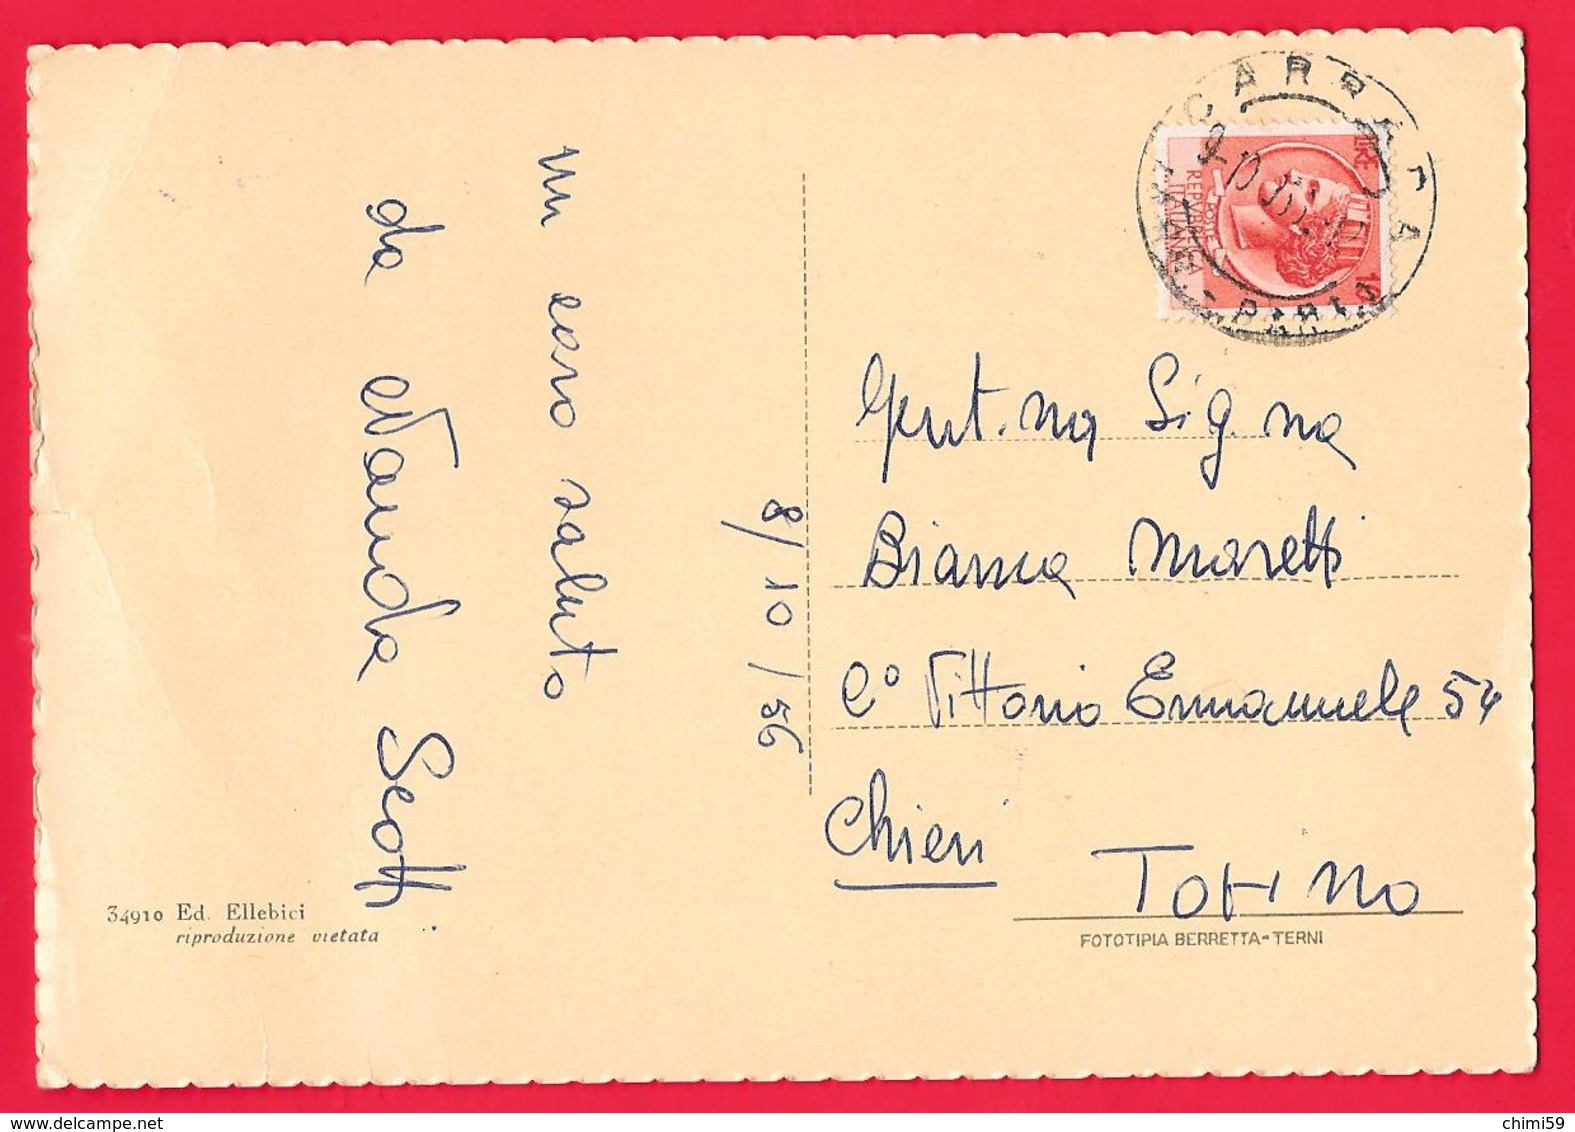 un caro saluto
da Wanda Scotti
8/10/56
34910 Ed. Ellebici
riproduzione vietata
CARRARA
LIRE
REPVBBLICA
ITALIANA
POSTE
Gent.ma Sig.na
Bianca Moretti
C° Vittorio Emanuele 54
Chieri
Torino
FOTOTIPIA BERRETTA-TERNI
chimi59